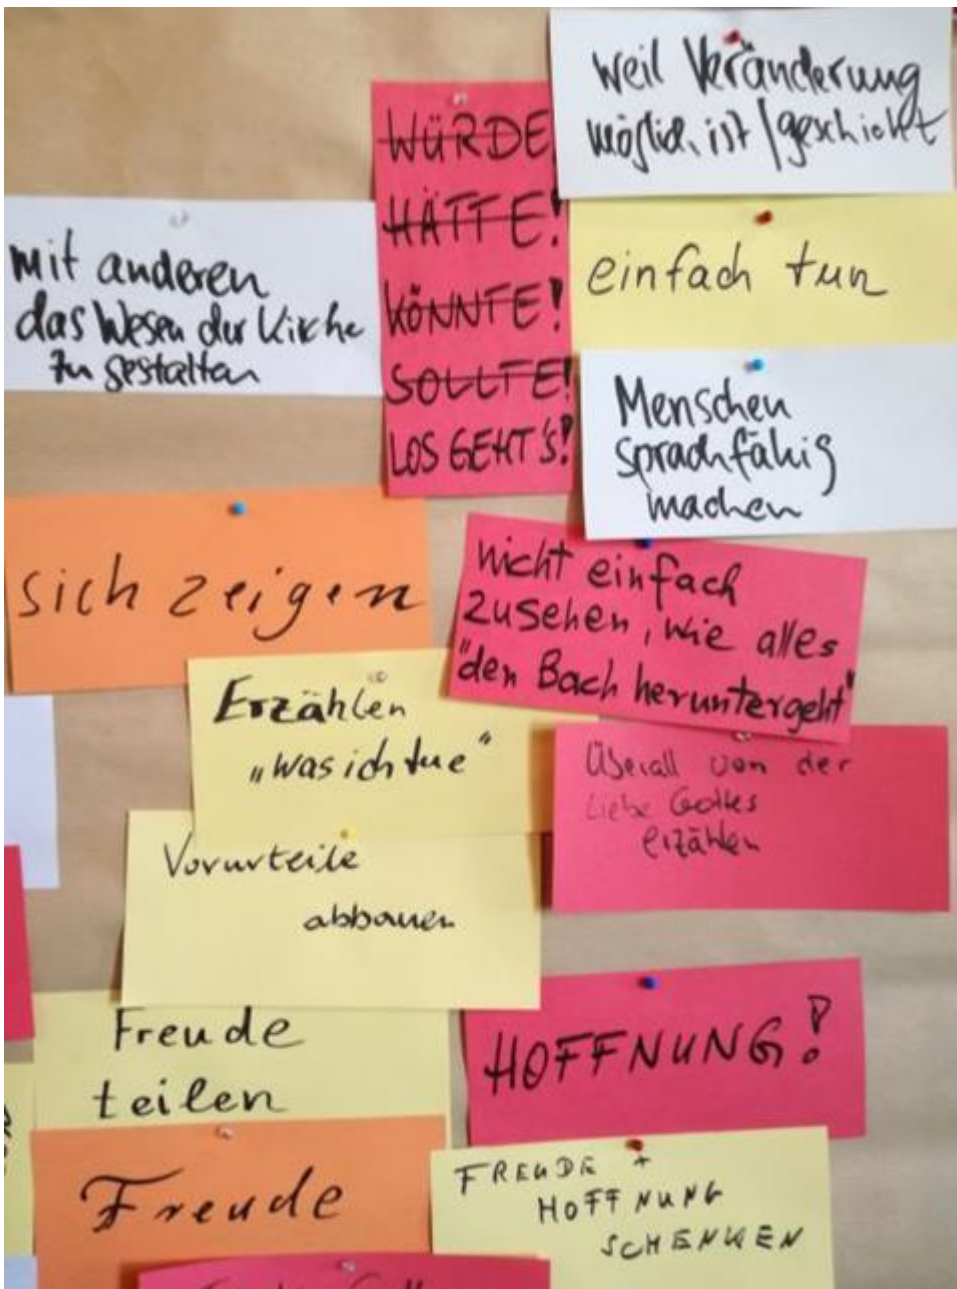 weil Veränderung
möglich ist / geschieht
WÜRDE
HÄTTE!
KÖNNTE!
SOLLTE!
LOS GEHT'S!
mit anderen
das Wesen der Kirche
zu gestalten
einfach tun
Menschen
sprachfähig
machen
sich zeigen
nicht einfach
zusehen, wie alles
"den Bach heruntergeht"
Erzählen
„was ich tue“
Überall von der
Liebe Gottes
erzählen
Vorurteile
abbauen
Freude
teilen
HOFFNUNG!
Freude
FREUDE +
HOFFNUNG
SCHENKEN